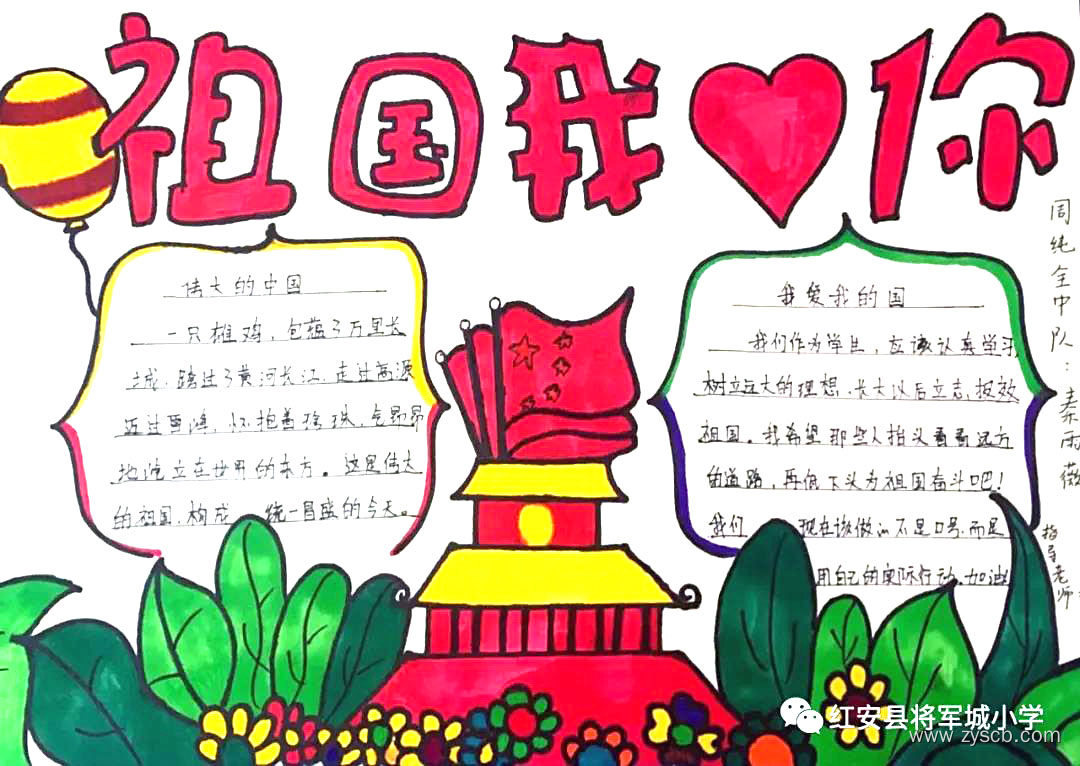 祖国我你
伟大的中国
一只雄鸡，包蕴了万里长
城，跨过了黄河长江，走过高源
迈过，怀抱着珍珠，气昂昂
地屹立在世界的东方。这是伟大
的祖国，构成 统一昌盛的今天。
我爱我的国
我们作为学生，应该认真学习
树立远大的理想，长大以后立志，报效
祖国。我希望那些人抬头看看远方
的道路，再低下头为祖国奋斗吧！
我们 现在该做的不是口号，而是
用自己的实际行动，加油
周纯全中队：秦雨薇
指导老师
红安县将军城小学
www.zyscb.com